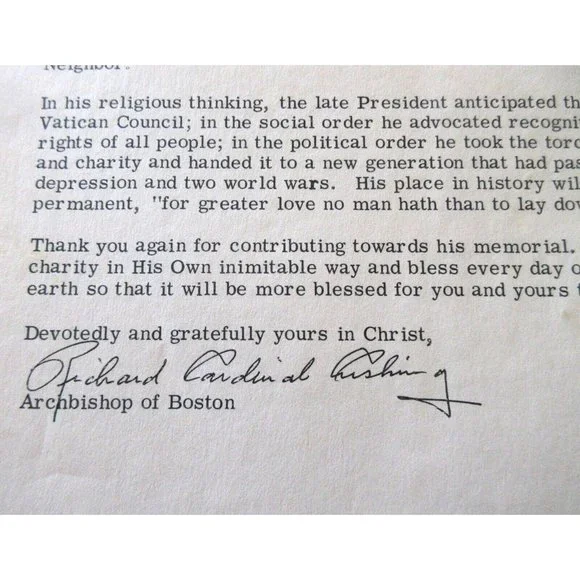 Neighbor.
In his religious thinking, the late President anticipated th
Vatican Council; in the social order he advocated recogniti
rights of all people; in the political order he took the torc
and charity and handed it to a new generation that had pas
depression and two world wars. His place in history wil
permanent, "for greater love no man hath than to lay dow
Thank you again for contributing towards his memorial.
charity in His Own inimitable way and bless every day o
earth so that it will be more blessed for you and yours t
Devotedly and gratefully yours in Christ,
Richard Cardinal Cushing
Archbishop of Boston